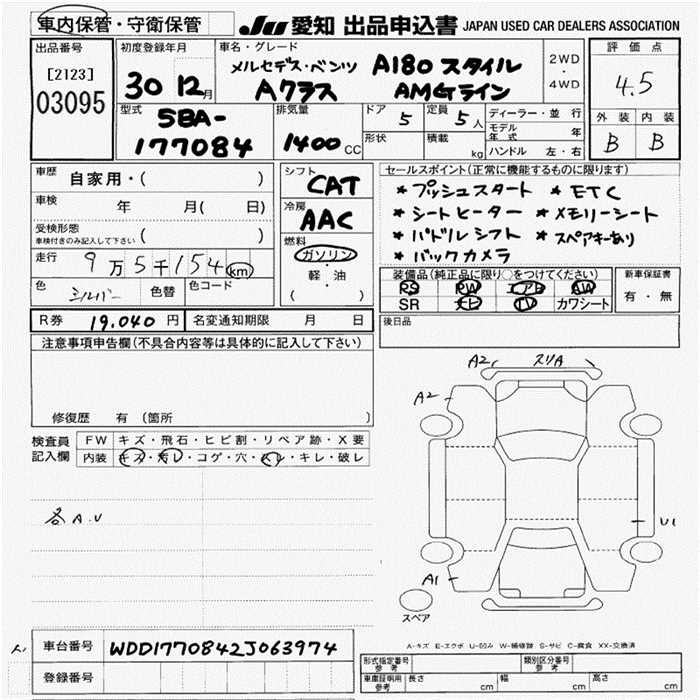 車内保管・守衛保管 JU 愛知 出品申込書 JAPAN USED CAR DEALERS ASSOCIATION
出品番号 [2123] 03095
初度登録年月 30 12月
車名・グレード メルセデス・ベンツ A180 スタイル
Aクラス AMGライン
2WD・4WD
評価点 4.5
外装 内装
B B
型式 5BA-
177084
排気量 1400 CC
ドア 5 定員 5人
形状 積載 kg
ディーラー・並行
モデル年式 年
ハンドル 左・右
車歴 自家用・( )
車検 年 月( 日)
受検形態 車検付きのみ記入して下さい ( )
走行 9万5千154 km
色 シルバー 色替 色コード
シフト CAT
冷房 AAC
燃料 ガソリン・軽油
( )
セールスポイント(正常に機能するものに限ります)
* プッシュスタート * ETC
* シートヒーター * メモリーシート
* パドルシフト * スペアキーあり
* バックカメラ
装備品(純正品に限り○をつけてください)
PS PW エアB AW
SR ナビ TV カワシート
新車保証書
有・無
R券 19.040円 名変通知期限 月 日
後日品
注意事項申告欄(不具合内容等は具体的に記入して下さい)
修復歴 有 (箇所 )
検査員記入欄 FW キズ・飛石・ヒビ割・リペア跡・X要
内装 キズ・汚レ・コゲ・穴・スレ・キレ・破レ
各A.U
A2 スリA
A2
U1
A1
スペア
A-キズ E-エクボ U-凹み W-補修跡 S-サビ C-腐食 XX-交換済
車台番号 WDD1770842J063974
登録番号
形式指定番号 参考 類別区分番号 参考
車庫証明用 参考 長さ cm 幅 cm 高さ cm